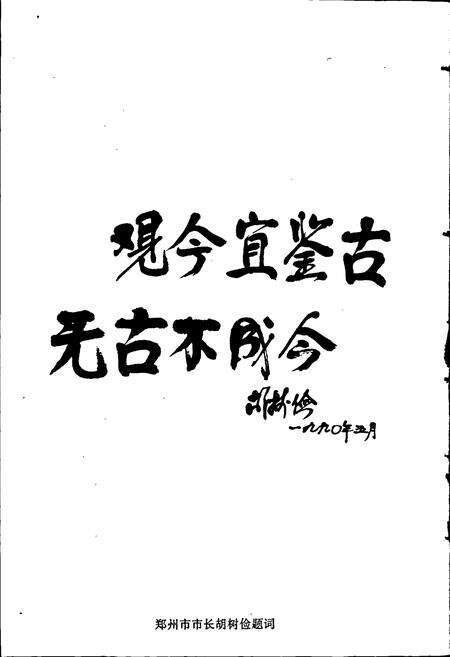 观今宜鉴古
无古不成今
胡树俭
一九九〇年五月
郑州市市长胡树俭题词